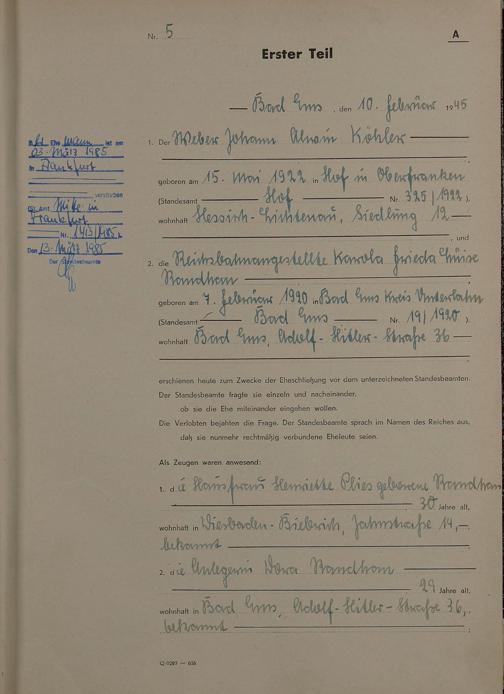 Nr. 5
A
Erster Teil
Bad Ems, den 10. Februar 1945
1. Der Weber Johann Alwin Köhler
geboren am 15. Mai 1922 in Hof in Oberfranken
(Standesamt Hof Nr. 325/1922),
wohnhaft Hessisch-Lichtenau, Siedlung 12
, und
2. die Reichsbahnangestellte Karola Frieda Luise
Ramdham
geboren am 7. Februar 1920 in Bad Ems Kreis Unterlahn
(Standesamt Bad Ems Nr. 19/1920),
wohnhaft Bad Ems, Adolf-Hitler-Straße 36
erschienen heute zum Zwecke der Eheschließung vor dem unterzeichneten Standesbeamten.
Der Standesbeamte fragte sie einzeln und nacheinander,
ob sie die Ehe miteinander eingehen wollen.
Die Verlobten bejahten die Frage. Der Standesbeamte sprach im Namen des Reiches aus,
daß sie nunmehr rechtmäßig verbundene Eheleute seien.
Als Zeugen waren anwesend:
1. die Hausfrau Henriette Plies geborene Ramdham
30 Jahre alt,
wohnhaft in Wiesbaden-Biebrich, Jahnstraße 14,
bekannt
2. die Dora Ramdham
29 Jahre alt,
wohnhaft in Bad Ems, Adolf-Hitler-Straße 36,
bekannt
Ehemann ist am
03. März 1985
in Frankfurt
verstorben
Mitte in
Frankfurt
Nr. 1413/1985
Den 13. März 1985
Der Standesbeamte